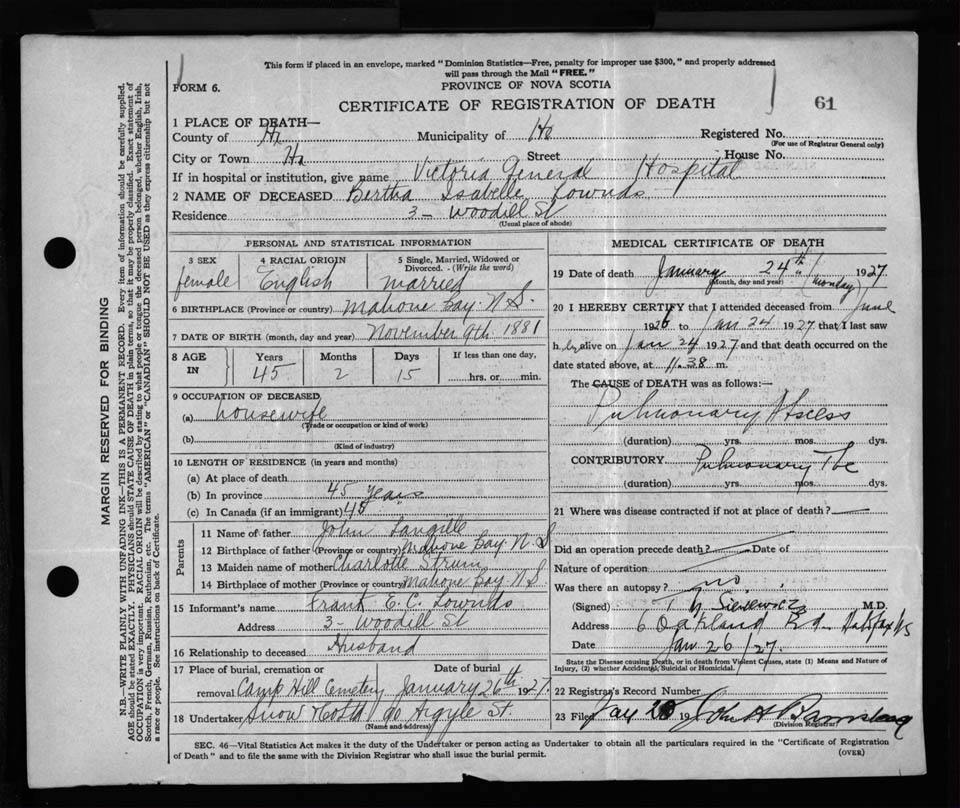 This form if placed in an envelope, marked "Dominion Statistics—Free, penalty for improper use $300," and properly addressed
will pass through the Mail "FREE."
FORM 6.
PROVINCE OF NOVA SCOTIA
CERTIFICATE OF REGISTRATION OF DEATH
61
1 PLACE OF DEATH—
County of Hx Municipality of Hx Registered No.
(For use of Registrar General only)
City or Town Hx Street House No.
If in hospital or institution, give name Victoria General Hospital
2 NAME OF DECEASED Bertha Isabelle Lownds
Residence 3 - Woodill St
(Usual place of abode)
PERSONAL AND STATISTICAL INFORMATION
3 SEX 4 RACIAL ORIGIN 5 Single, Married, Widowed or
Divorced. - (Write the word)
female English married
6 BIRTHPLACE (Province or country) Mahone Bay N S.
7 DATE OF BIRTH (month, day and year) November 9th 1881
8 AGE IN Years Months Days If less than one day,
45 2 15 hrs. or min.
9 OCCUPATION OF DECEASED
(a) housewife
(Trade or occupation or kind of work)
(b)
(Kind of industry)
10 LENGTH OF RESIDENCE (in years and months)
(a) At place of death
(b) In province 45 years
(c) In Canada (if an immigrant) 45
Parents
11 Name of father John Langille
12 Birthplace of father (Province or country) Mahone Bay N S
13 Maiden name of mother Charlotte Strum
14 Birthplace of mother (Province or country) Mahone Bay N.S.
15 Informant's name Frank E. C. Lownds
Address 3 - Woodill St
16 Relationship to deceased Husband
17 Place of burial, cremation or Date of burial
removal Camp Hill Cemetery January 26th 1927.
18 Undertaker Snow & Co Ltd 90 Argyle St.
(Name and address)
MEDICAL CERTIFICATE OF DEATH
19 Date of death January 24th 1927
(Month, day and year) (monday)
20 I HEREBY CERTIFY that I attended deceased from June
1926 to Jan 24 1927 that I last saw
h er alive on Jan 24 1927 and that death occurred on the
date stated above, at 11.38 m.
The CAUSE of DEATH was as follows:
Pulmonary Abscess
(duration) yrs. mos. dys.
CONTRIBUTORY Pulmonary Tbc
(duration) yrs. mos. dys.
21 Where was disease contracted if not at place of death?
Did an operation precede death? Date of
Nature of operation
Was there an autopsy? no
(Signed) M.D.
Address 6 Oakland Rd - Halifax NS
Date Jan 26/27.
State the Disease causing Death, or in death from Violent Causes, state (1) Means and Nature of
Injury, (2) whether Accidental, Suicidal or Homicidal.
22 Registrar's Record Number
23 Filed 19
(Division Registrar)
SEC. 46—Vital Statistics Act makes it the duty of the Undertaker or person acting as Undertaker to obtain all the particulars required in the "Certificate of Registration
of Death" and to file the same with the Division Registrar who shall issue the burial permit.
(OVER)
MARGIN RESERVED FOR BINDING
N.B.—WRITE PLAINLY WITH UNFADING INK—THIS IS A PERMANENT RECORD. Every item of information should be carefully supplied.
AGE should be stated EXACTLY. PHYSICIANS should STATE CAUSE OF DEATH in plain terms, so that it may be properly classified. Exact statement of
OCCUPATION is very important. RACIAL ORIGIN will be described by stating to what people or tongue the deceased person belonged, whether English, Irish,
Scotch, French, German, Russian, Ruthenian, etc. The terms "AMERICAN" or "CANADIAN" SHOULD NOT BE USED as they express citizenship but not
a race or people. See instructions on back of Certificate.